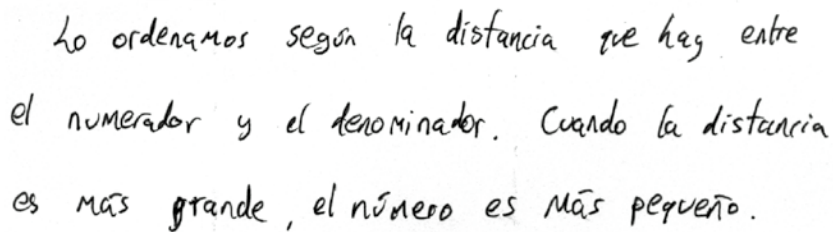 Lo ordenamos según la distancia que hay entre
el numerador y el denominador. Cuando la distancia
es más grande, el número es más pequeño.